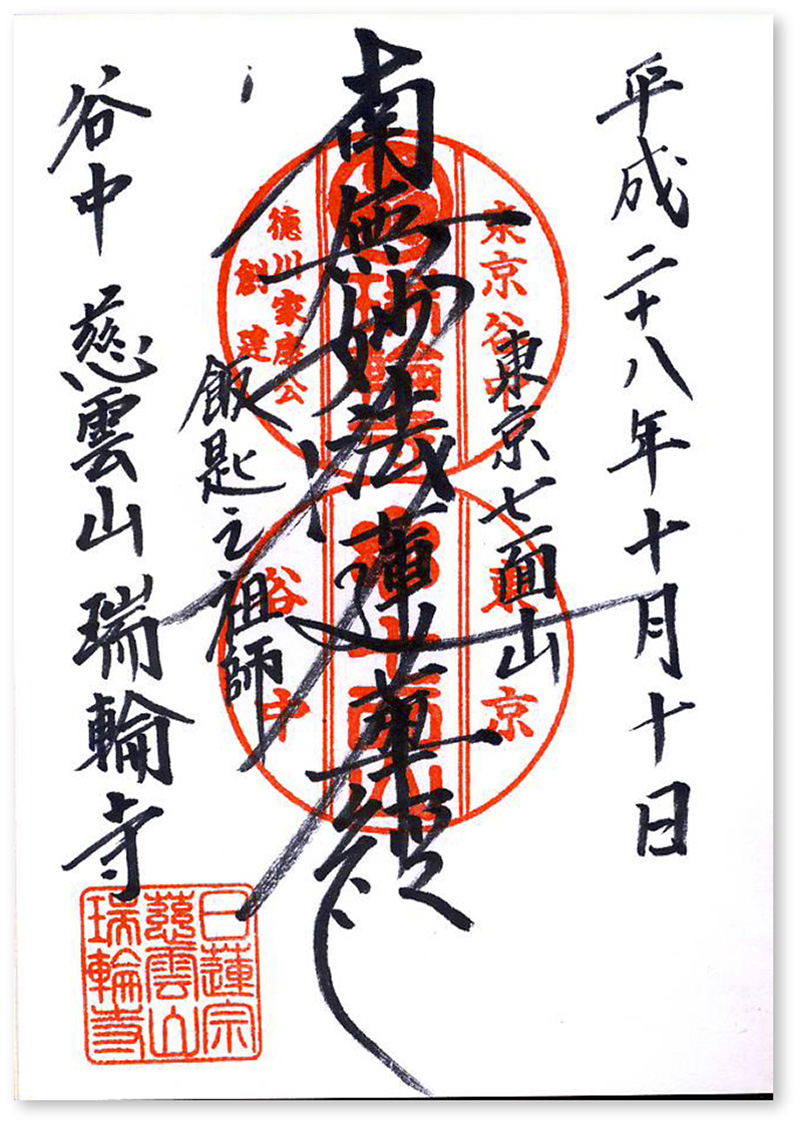 平成二十八年十月十日
東京七面山
南無妙法蓮華経
飯匙之祖師
谷中 慈雲山 瑞輪寺
東京谷中
瑞輪寺
徳川家康公
創建
東京
七面山
谷中
日蓮宗
慈雲山
瑞輪寺